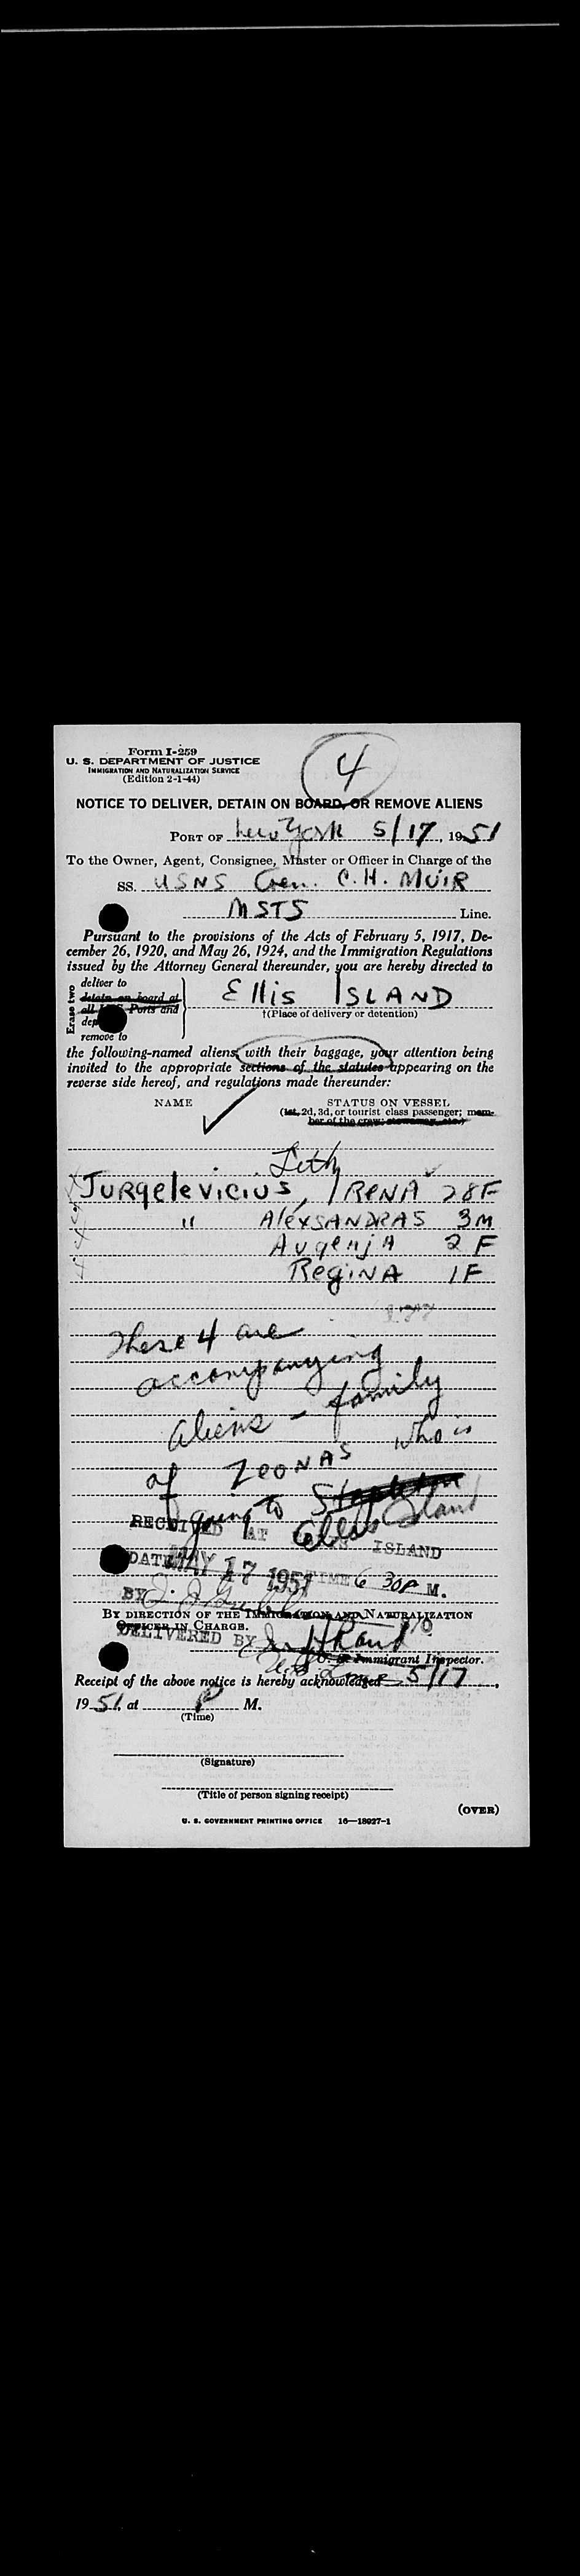 Form I-259
U. S. DEPARTMENT OF JUSTICE
IMMIGRATION AND NATURALIZATION SERVICE
(Edition 2-1-44)
4
NOTICE TO DELIVER, DETAIN ON BOARD, OR REMOVE ALIENS
PORT OF New York 5/17, 1951
To the Owner, Agent, Consignee, Master or Officer in Charge of the
SS. USNS Gen. C. H. MUIR
MSTS Line.
Pursuant to the provisions of the Acts of February 5, 1917, De-
cember 26, 1920, and May 26, 1924, and the Immigration Regulations
issued by the Attorney General thereunder, you are hereby directed to
Erase two
deliver to
detain on board at
all U.S. Ports and
remove to
Ellis ISLAND
†(Place of delivery or detention)
the following-named aliens, with their baggage, your attention being
invited to the appropriate sections of the statutes appearing on the
reverse side hereof, and regulations made thereunder:
NAME STATUS ON VESSEL
(1st, 2d, 3d, or tourist class passenger; mem-
ber of the crew;
Lith
Jurgelevicius, IRENA 28F
" AlexSANDRAS 3M
AugenjA 2 F
RegiNA 1F
These 4 are
accompanying
aliens - family
of ZeoNAS who is
going to Ellis Island
RECEIVED AT ELLIS ISLAND
DATE MAY 17 1951 TIME 6 30P M.
BY J. J.
BY DIRECTION OF THE IMMIGRATION AND NATURALIZATION
OFFICER IN CHARGE.
DELIVERED BY
Immigrant Inspector.
Receipt of the above notice is hereby acknowledged 5/17,
1951, at P M.
(Time)
(Signature)
(Title of person signing receipt)
(OVER)
U. S. GOVERNMENT PRINTING OFFICE 16—18027-1